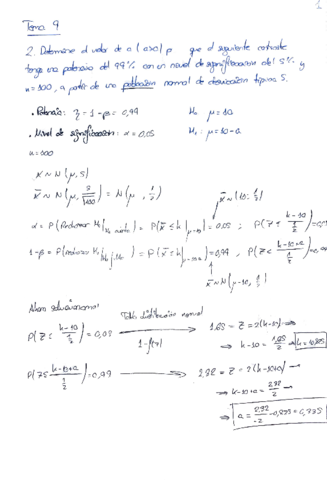 1
Tema 9
2. Determine el valor de a (a>0) p que el siguiente contraste
tenga una potencia del 99% con un nivel de significación del 5% y
n=100, a partir de una población normal de desviación típica 5.
• Potencia: η = 1-β = 0,99 H₀ μ = 10
• Nivel de significación: α = 0,05 H₁: μ = 10-a
n=100
X ~ N(μ, 5)
X̄ ~ N(μ, 5/√100) = N(μ, 1/2)
α = P(Rechazar H₀ | H₀ cierta) = P(X̄ ≤ k | μ=10) = 0,05 ; P(Z ≤ (k-10)/(1/2)) = 0,05
1-β = P(Rechazar H₀ | H₁ cierta) = P(X̄ ≤ k | μ=10-a) = 0,99 ; P(Z ≤ (k-10+a)/(1/2)) = 0,99
Ahora solucionamos
Tabla distribución normal
P(Z ≤ (k-10)/(1/2)) = 0,05 → 1,65 = Z = 2(k-10) →
1-f(z) ⇒ k-10 = 1,65/2 ⇒ k = 10,825
P(Z ≤ (k-10+a)/(1/2)) = 0,99 → 2,32 = Z = 2(k-10+a) →
⇒ k-10+a = 2,32/2 →